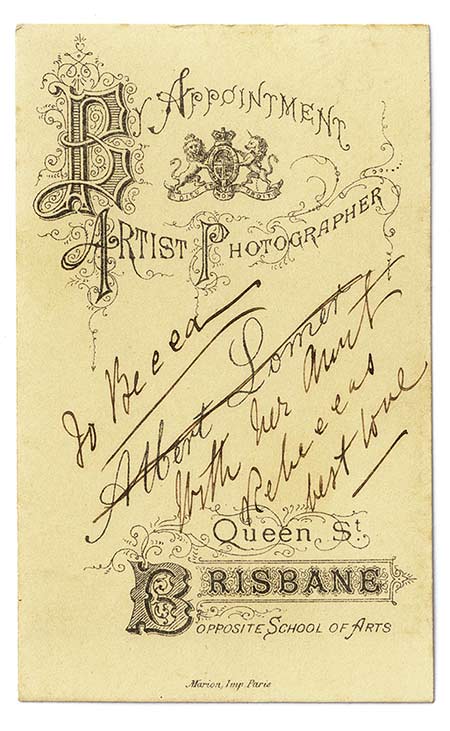 By Appointment
Artist Photographer
To Becca
Albert Lomer
With her Aunt
Rebeccas
best love
Queen St.
Brisbane
Opposite School of Arts
Marion, Imp. Paris